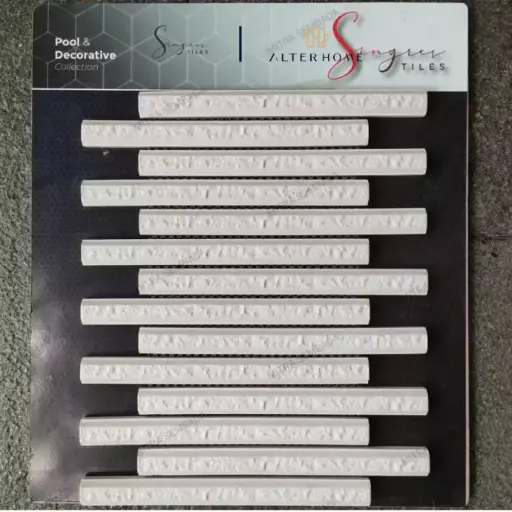 Pool &
Decorative
Collection
Singres
TILES
ALTERHOME
Singres
TILES